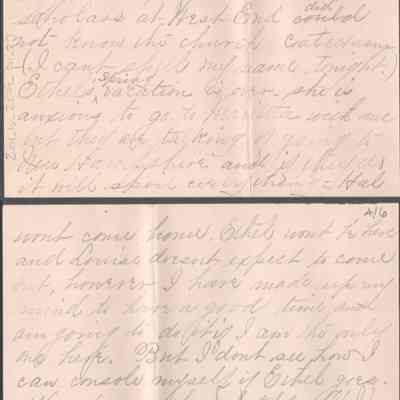 scholars at West End did could
not know the church catechism
(I cant spell my name tonight.)
Ethel's spring vacation is over. she is
anxious to go to with me
but they are talking of going to
New Hampshire and if they do
it will spoil everything - Hal
A/6
wont come home. Ethel wont be here
and Louise doesn't expect to come
out, however I have made up my
mind to have a good time and
am going to do it if I am the only
one here. But I don't see how I
can console myself if Ethel goes.